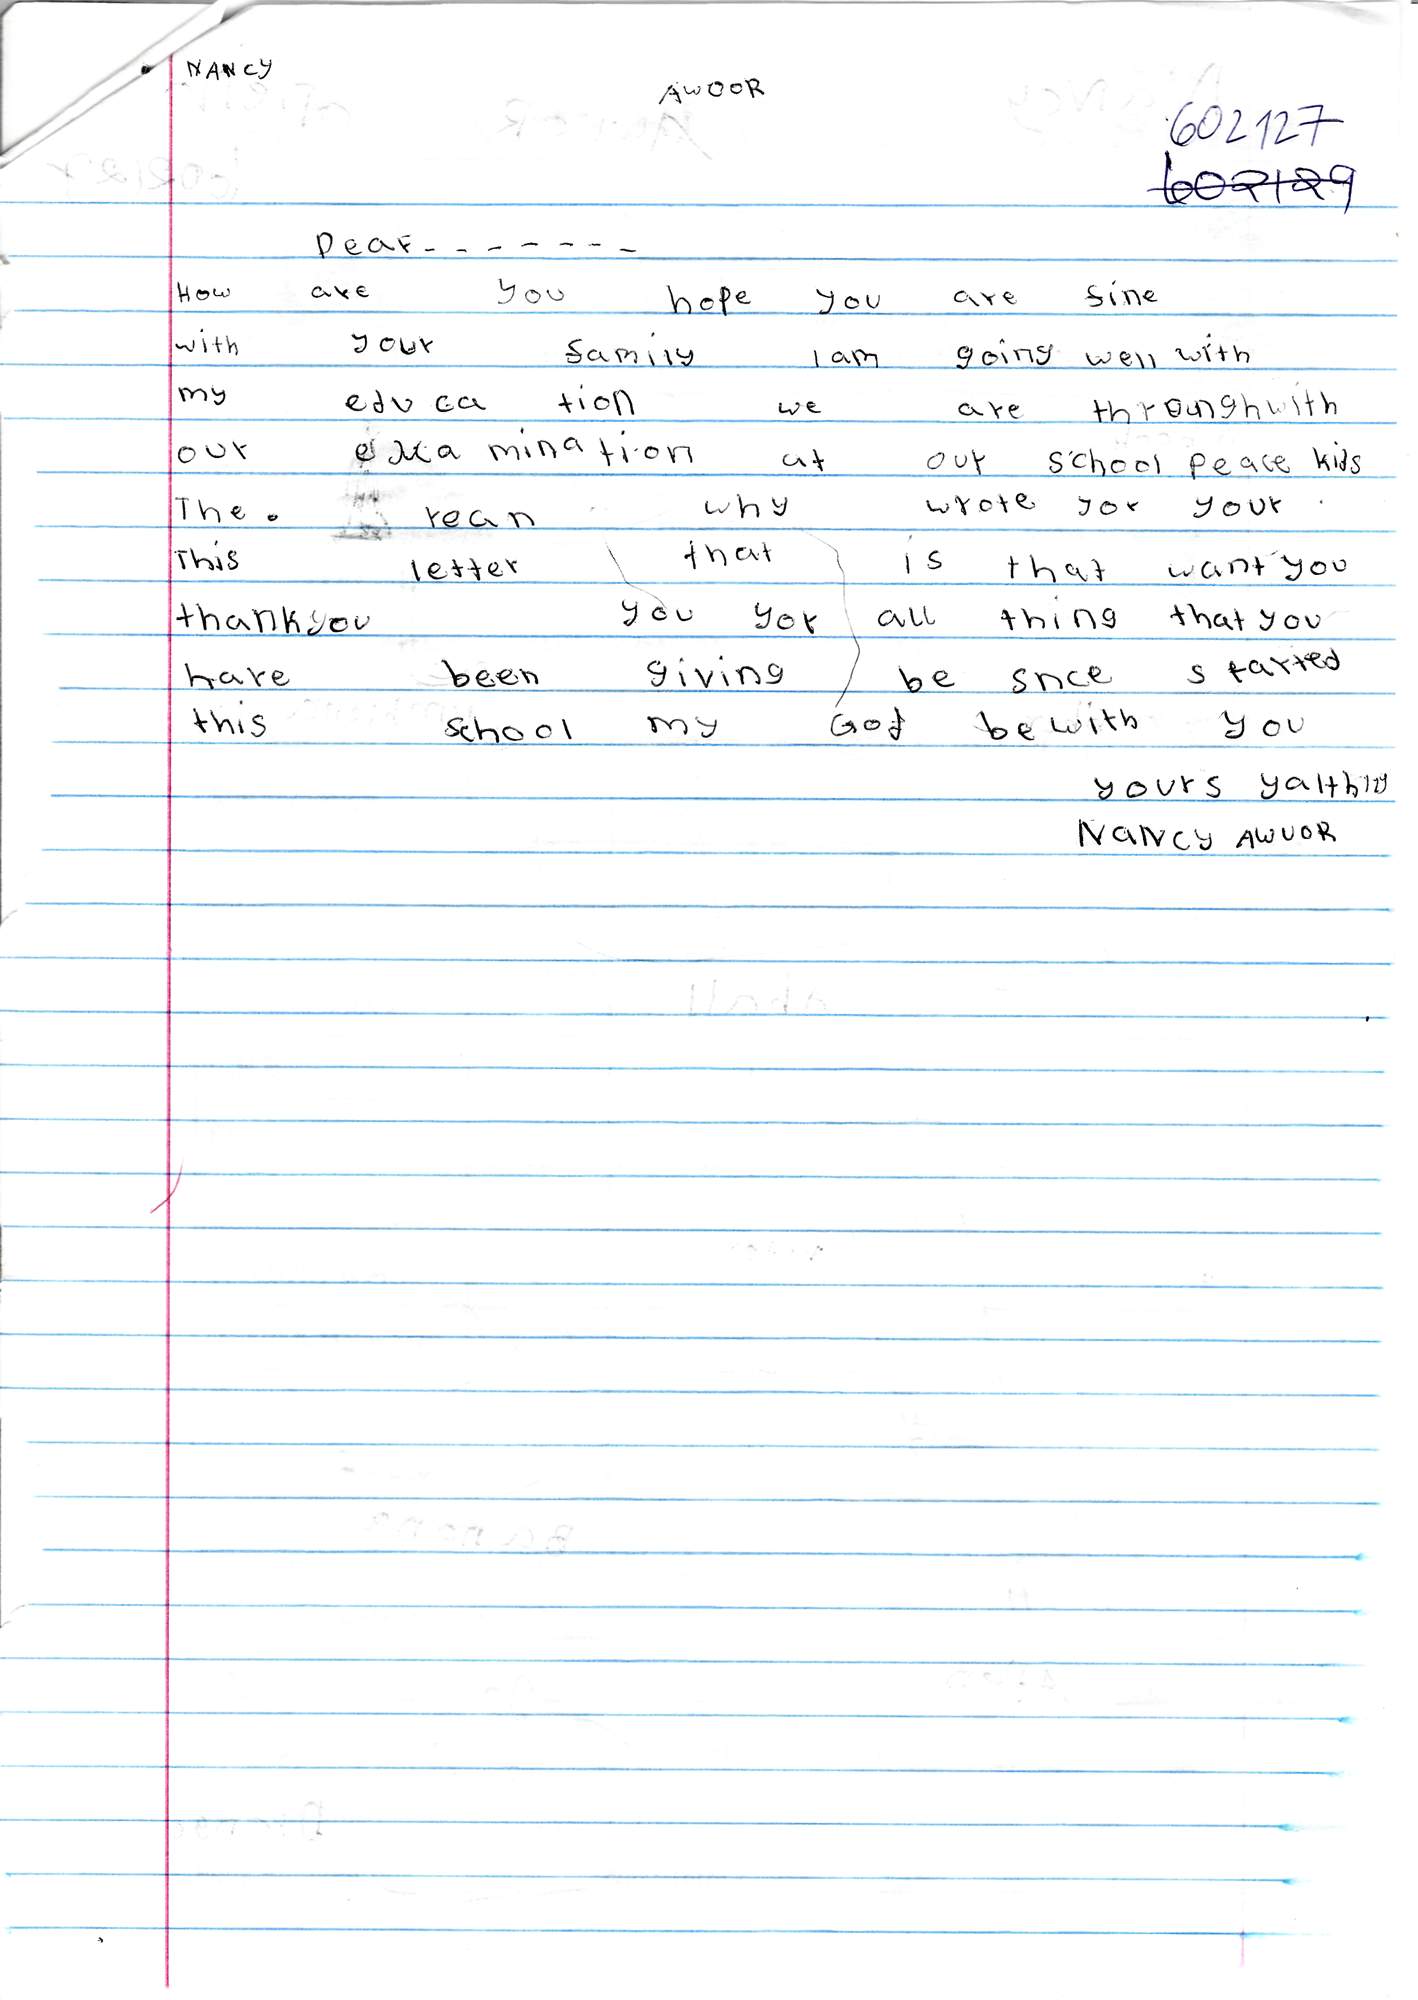 NANCY AWOOR
602127
602129
Dear - - - - - - -
How are you hope you are sine
with your samily I am going well with
my educa tion we are throunghwith
our exa mination at our school peace kids
The. rean why wrote yor your
This letter that is that want you
thankyou you yor all thing that you
hare been giving be snce started
this school my God be with you
yours yalthlly
NANCY AWUOR